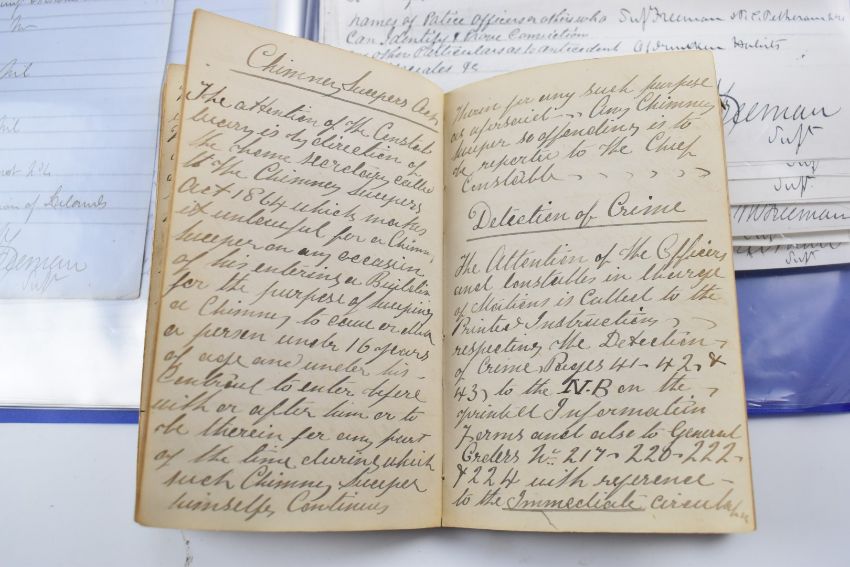 Chimney Sweepers Act,
The attention of the Constab
ulary is by direction of
the Home Secretary called
to the Chimney Sweepers
Act 1864 which makes
it unlawful for a Chimney
Sweeper on any occasion
of his entering a Building
for the purpose of sweeping
a Chimney to cause or allow
a person under 16 years
of age and under his
Control to enter before
with or after him or to
be therein for any part
of the time during which
such Chimney Sweeper
himself Continues
therein for any such purpose
as aforesaid Any Chimney
Sweeper so offending is to
be reported to the Chief
Constable
Detection of Crime
The Attention of the Officers
and Constables in Charge
of Stations is Called to the
Printed Instructions
respecting the Detection
of Crime Pages 41 - 42 &
43, to the N.B on the
printed Information
Forms and also to General
Orders No 217, 220, 222,
& 224 with reference
to the Immediate circula
names of Police Officers or others who
Can Identify & Prove Conviction
other Particulars as to antecedent
&c
Supt Freeman &
of drunken Habits
Freeman
Supt
Supt
Supt
Freeman
Supt
Supt
Freeman